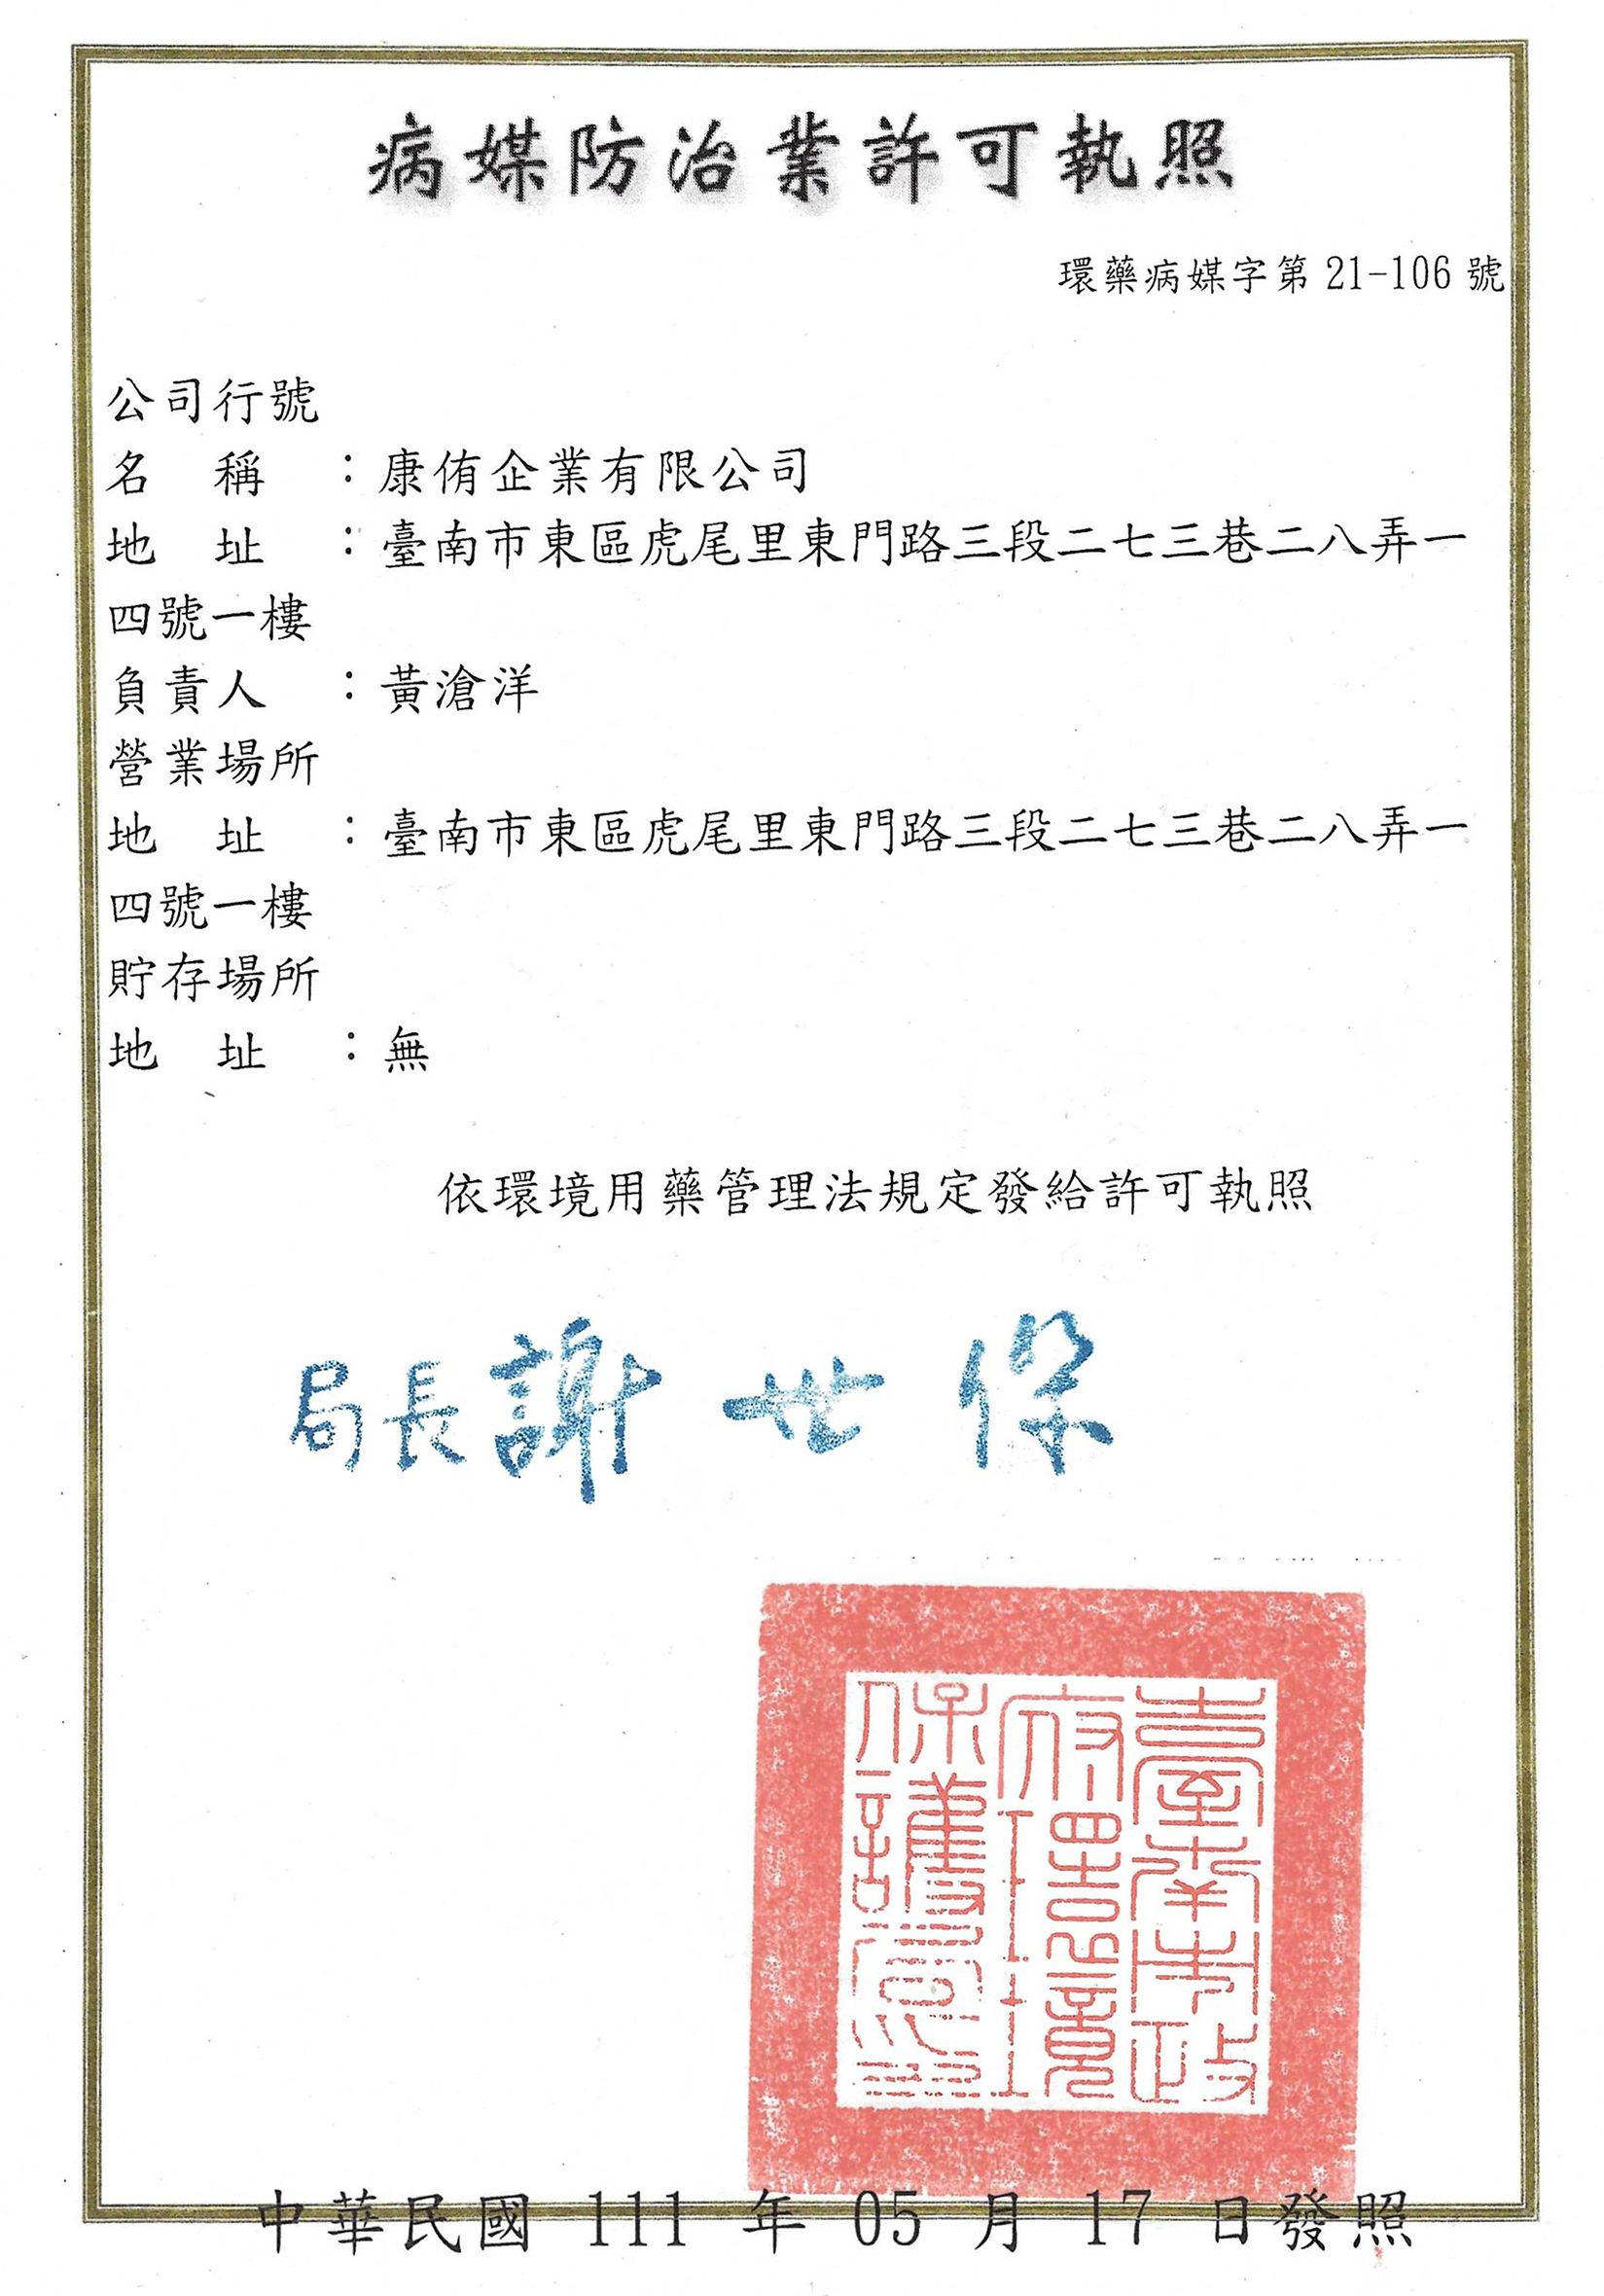 病媒防治業許可執照
環藥病媒字第 21-106 號
公司行號
名　稱　：康侑企業有限公司
地　址　：臺南市東區虎尾里東門路三段二七三巷二八弄一
四號一樓
負責人　：黃滄洋
營業場所
地　址　：臺南市東區虎尾里東門路三段二七三巷二八弄一
四號一樓
貯存場所
地　址　：無
依環境用藥管理法規定發給許可執照
局長謝世傑
臺南市政
府環境
保護局印
中華民國 111 年 05 月 17 日發照